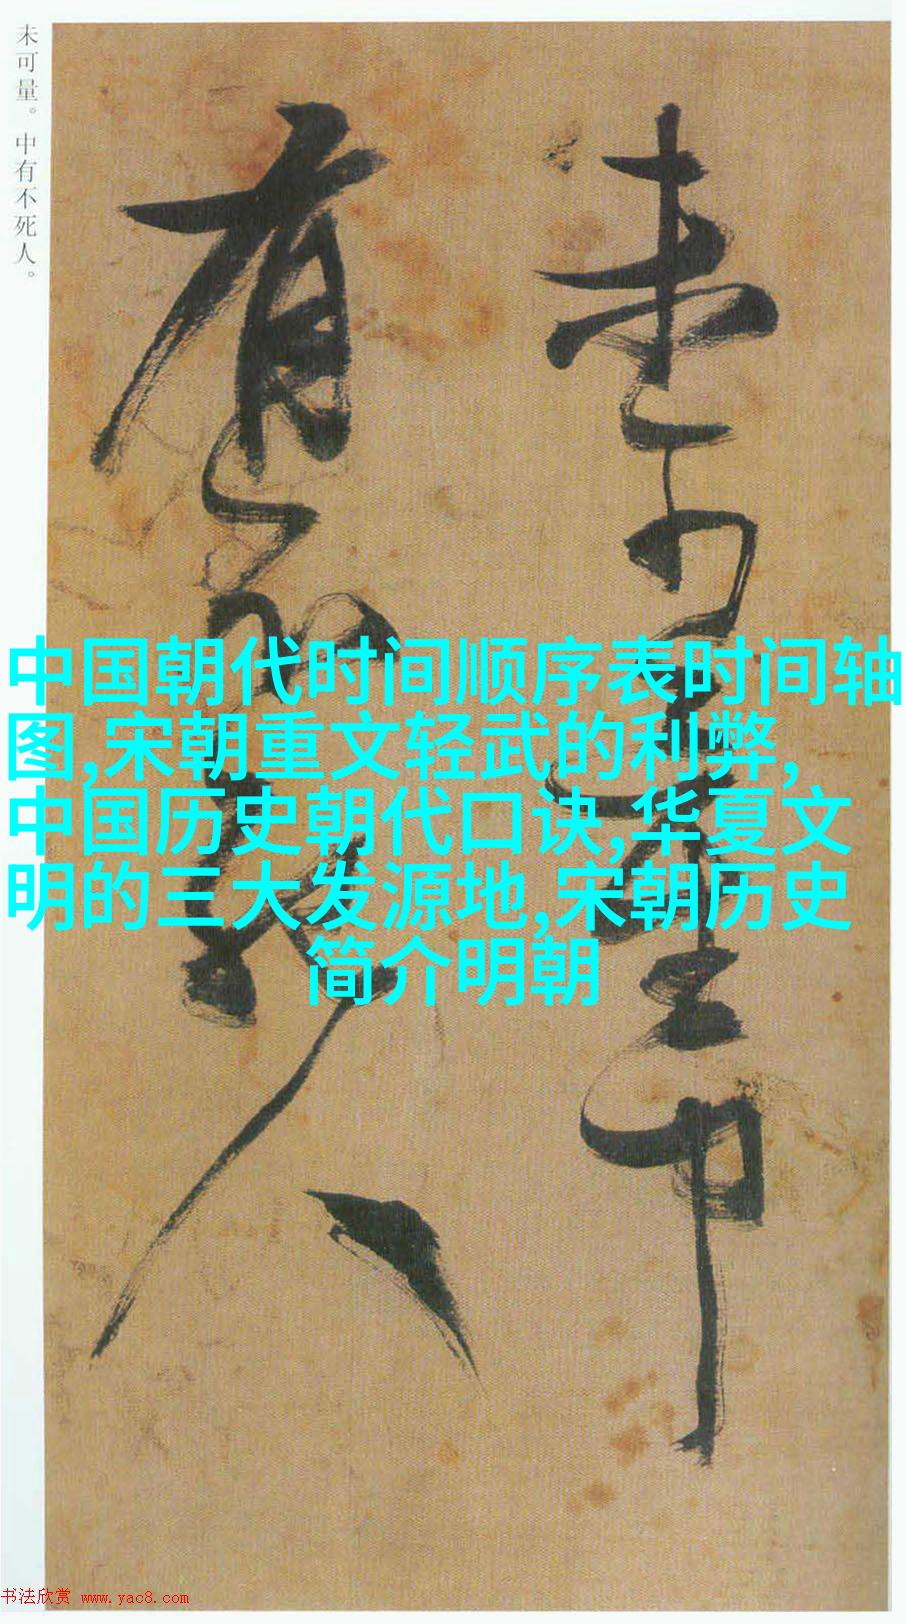 未可量。中有不死人。
未可量中
有不死人
中国朝代时间顺序表时间轴
图,宋朝重文轻武的利弊,
中国历史朝代口诀,华夏文
明的三大发源地,宋朝历史
简介明朝
书法欣赏 www.yac8.com